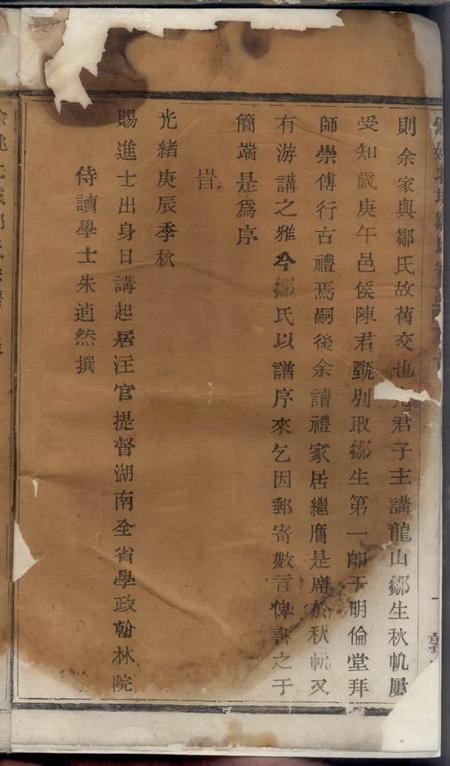 則余家與鄒氏故舊交也君子主講龍山鄒生秋帆屬
受知歲庚午邑侯陳君甄別取鄒生第一卽于明倫堂拜
師崇傅行古禮焉嗣後余讀禮家居繼膺是席於秋帆又
有游講之雅今鄒氏以譜序來乞因郵寄數言俾書之于
簡端是爲序
旹
光緒庚辰季秋
賜進士出身日講起居注官提督湖南全省學政翰林院
侍讀學士朱逌然撰